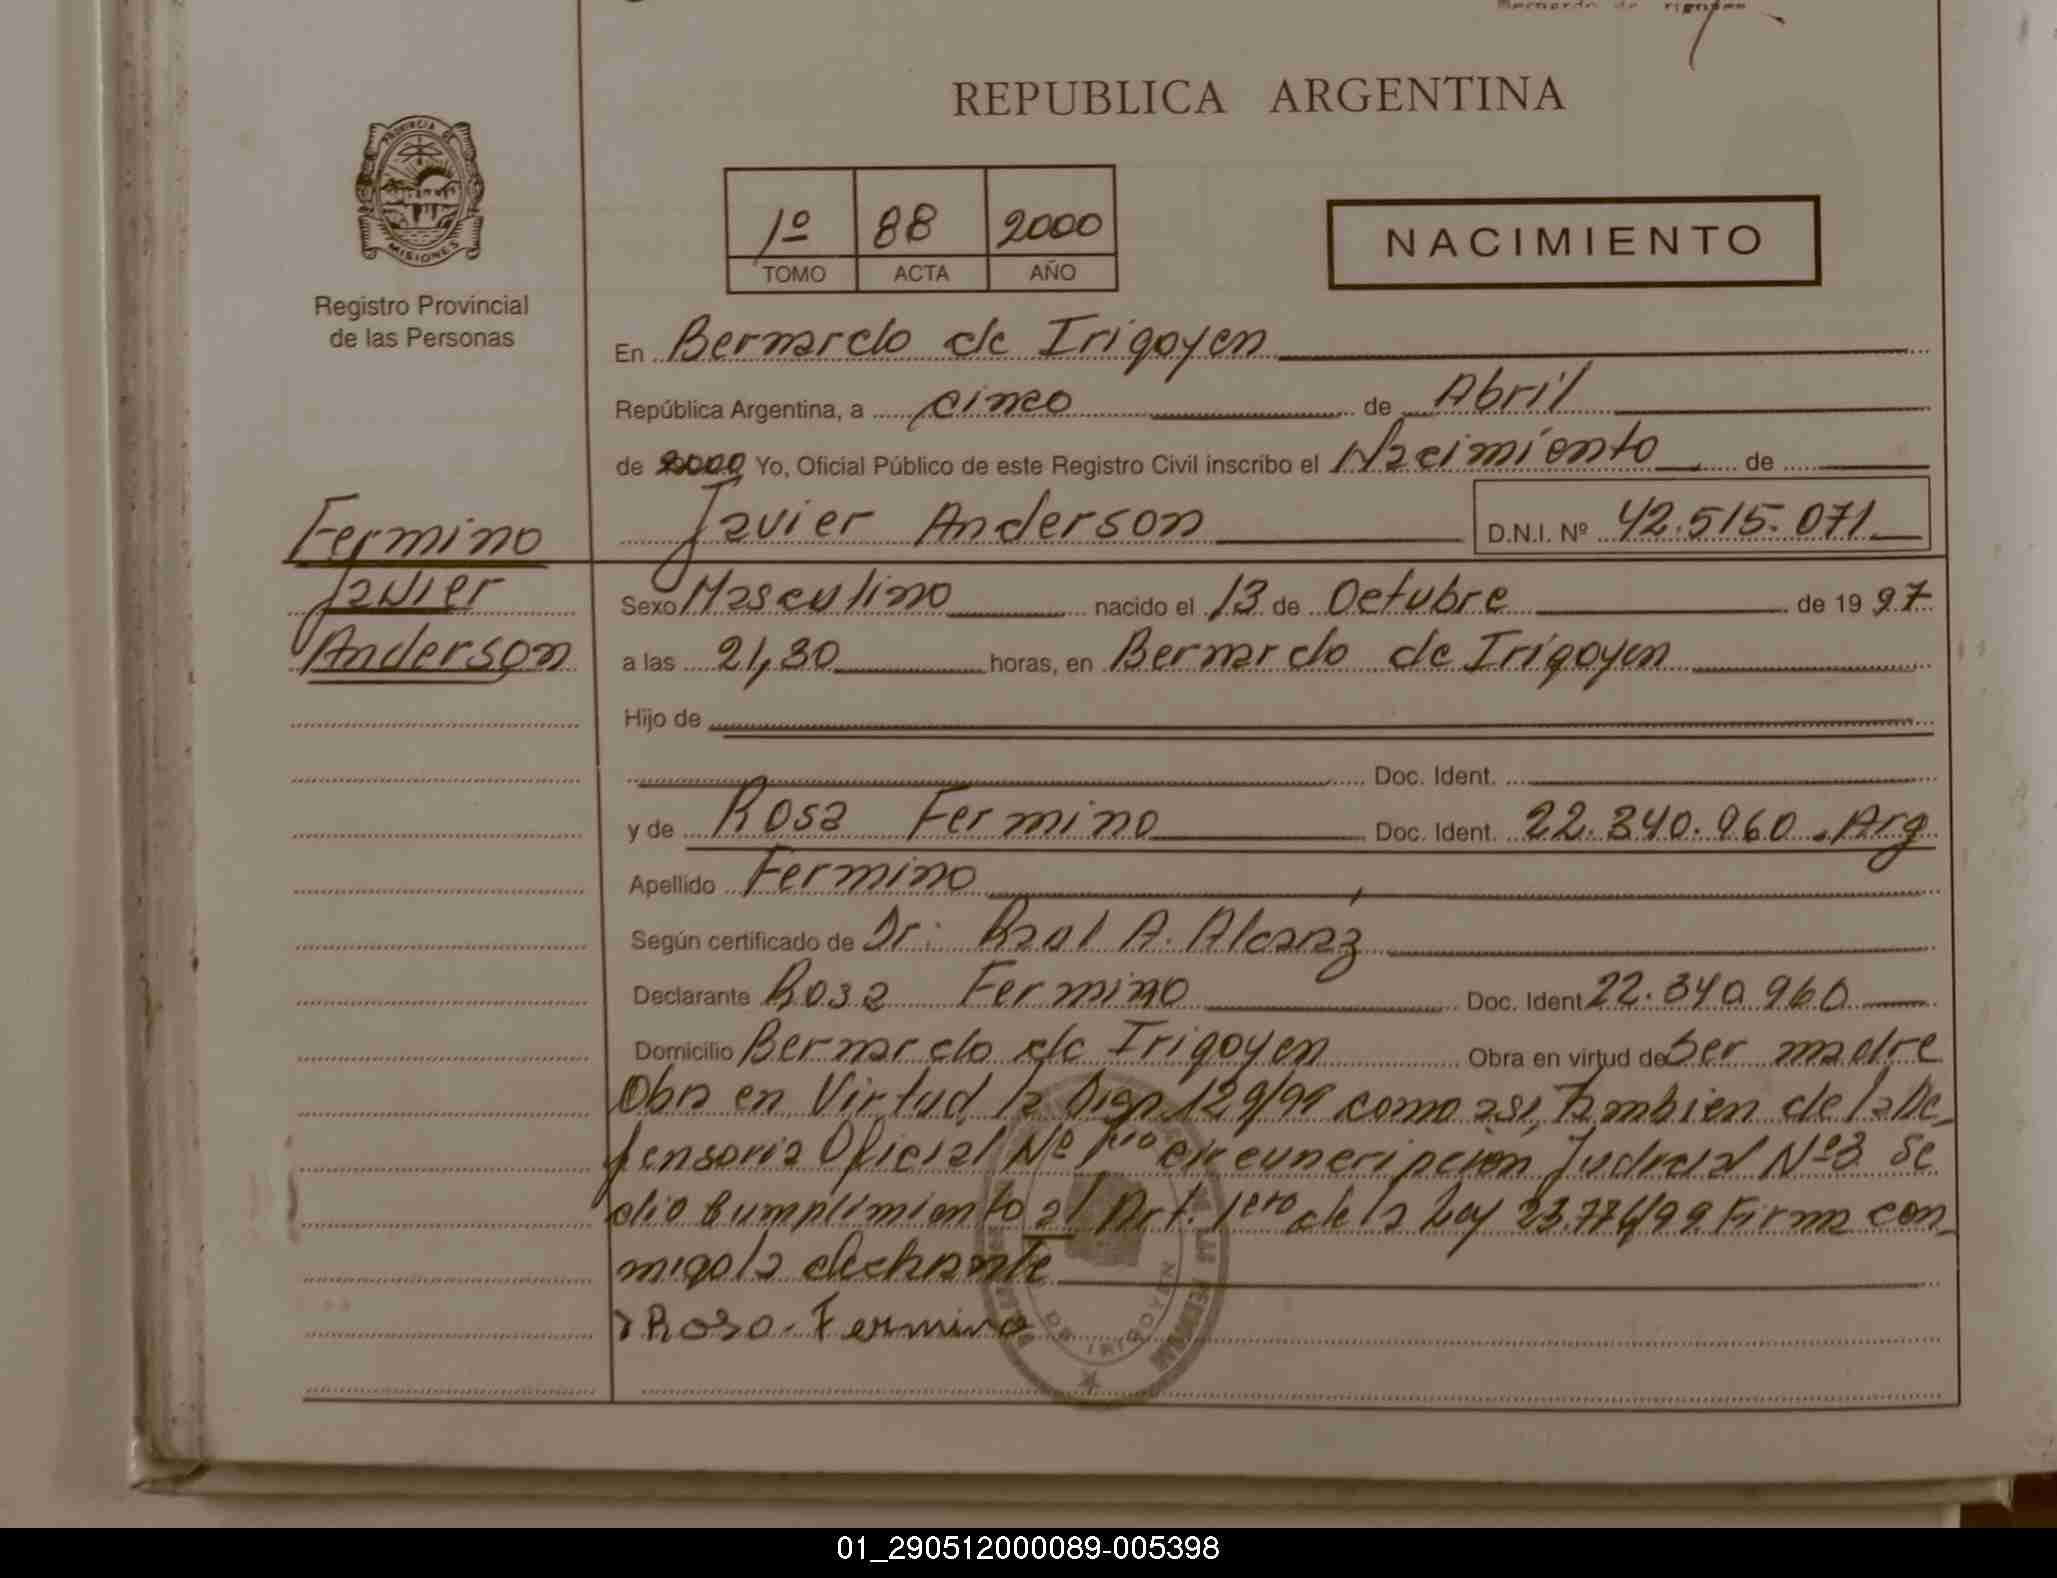 REPUBLICA ARGENTINA
PROVINCIA DE
MISIONES
Registro Provincial
de las Personas
1º 88 2000
TOMO ACTA AÑO
NACIMIENTO
En Bernardo de Irigoyen
República Argentina, a cinco de Abril
de 2000 Yo, Oficial Público de este Registro Civil inscribo el Nacimiento de
Javier Anderson D.N.I. Nº 42.515.071
Fermino
Javier
Anderson
Sexo Masculino nacido el 13 de Octubre de 1997
a las 21,30 horas, en Bernardo de Irigoyen
Hijo de
Doc. Ident.
y de Rosa Fermino Doc. Ident. 22.340.960. Arg
Apellido Fermino
Según certificado de Dr: Raul A. Alcaráz
Declarante Rosa Fermino Doc. Ident 22.340.960
Domicilio Bernardo de Irigoyen Obra en virtud de Ser madre
Obra en Virtud la Disp. 129/99 como así, Tambien de la De_
fensoria Oficial Nº 1ro circuncripción Judicial Nº3 Se
dio Cumplimiento al Art. 1ero de la Ley 23.776/99. Firma con_
migo la declarante
Rosa. Fermino
DE IRIGOYEN
01_290512000089-005398